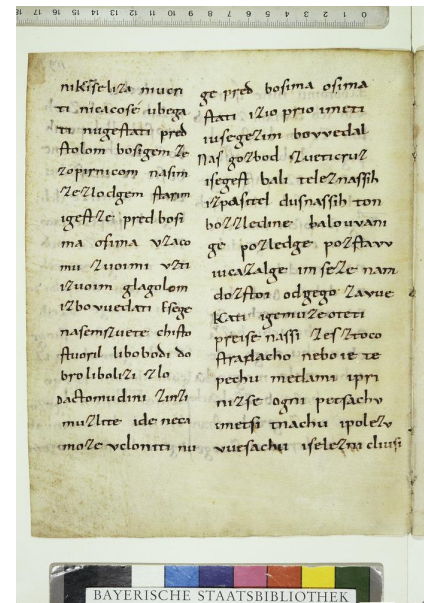 nikiſe liza niucri
ti nicacoſe ubega
ti nugeſtati pred
ſtolom boſigem ze
zopirnicom naſim
zezlodgem ſtarim
igeſtze pred boſi
ma oſima vzaco
mu zuoimi vzti
izuoim glagolom
izbovuedati Eſege
naſemzuete chiſto
ſtuoril libobodi do
bro liboli zi zlo
Dactomu dini zinzi
muzlite ide neca
moze vcloniti nu
ge pred boſima oſima
ſtati izio prio imeti
iuſegezim bovvedal
Naſ gozbod zueticruz
iſegeſt bali teleznaſſih
izpaſitel duſnaſſih ton
bozzledine balouvani
ge pozledge poztavv
iucazalge im ſeze nam
doztoi odgego zavue
kati igemuze oteti
preiſe naſſi zeztoco
ſtradacho nebo ie te
pechu metlami ipri
nizſe ogni petſachv
imetſi tnachu ipolezv
vueſachu iſelezni cliuſi
BAYERISCHE STAATSBIBLIOTHEK